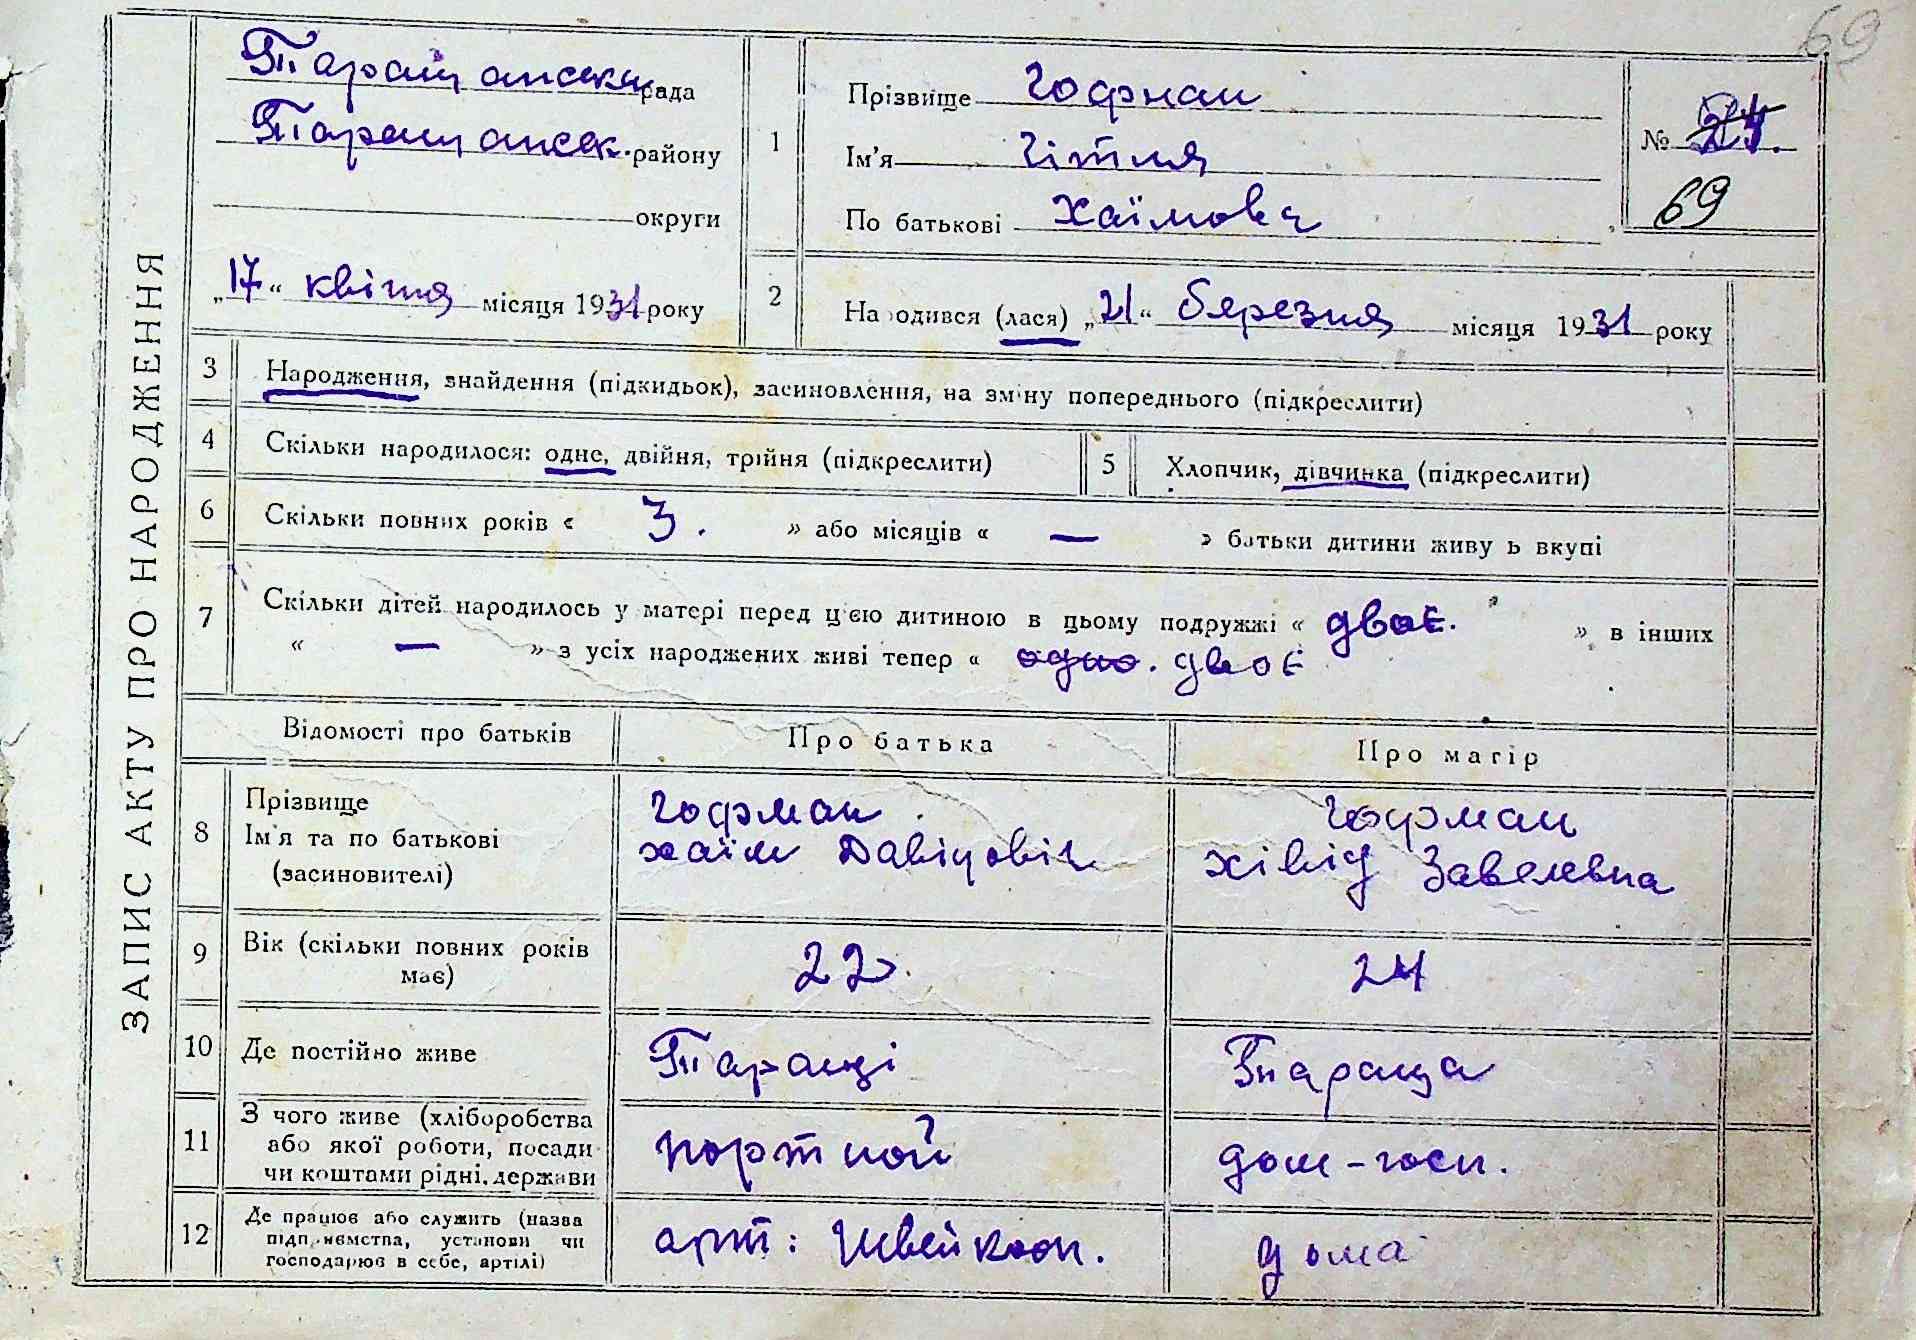 69
ЗАПИС АКТУ ПРО НАРОДЖЕННЯ
Таращанська рада
Таращанськ. району
округи
„17“ квітня місяця 1931 року
1
Прізвище Гофман
Ім'я Гітля
По батькові Хаїмовa
№ 24.
69
2
Народився (лася) „21“ березня місяця 1931 року
3 Народження, знайдення (підкидьок), засиновлення, на зміну попереднього (підкреслити)
4 Скільки народилося: одне, двійня, трійня (підкреслити)
5 Хлопчик, дівчинка (підкреслити)
6 Скільки повних років « 3. » або місяців « — » батьки дитини живуть вкупі
7 Скільки дітей народилось у матері перед цією дитиною в цьому подружжі « двоє. » в інших
« — » з усіх народжених живі тепер « одно. двоє
Відомості про батьків Про батька Про матір
8 Прізвище
Ім'я та по батькові
(засиновителі)
Гофман
Хаїм Давидовіч
Гофман
Хівід Завелевна
9 Вік (скільки повних років
має)
22.
24
10 Де постійно живе Таращі Тараща
11 З чого живе (хліборобства
або якої роботи, посади
чи коштами рідні, держави
портной
дом-госп.
12 Де працює або служить (назва
підприємства, установи чи
господарює в себе, артілі)
арт: Швейкооп.
дома